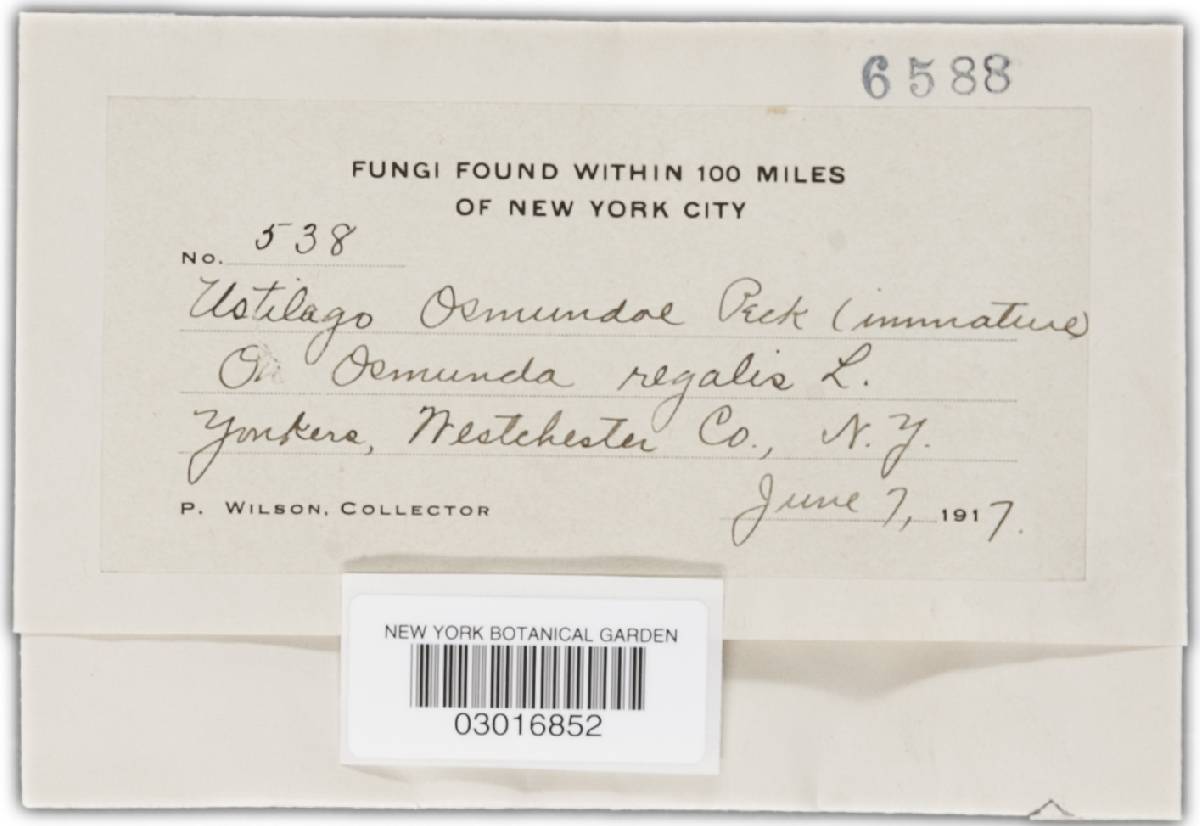 6588
FUNGI FOUND WITHIN 100 MILES
OF NEW YORK CITY
No. 538
Ustilago Osmundae Peck (immature)
On Osmunda regalis L.
Yonkers, Westchester Co., N. Y.
P. WILSON, COLLECTOR June 7, 1917.
NEW YORK BOTANICAL GARDEN
03016852